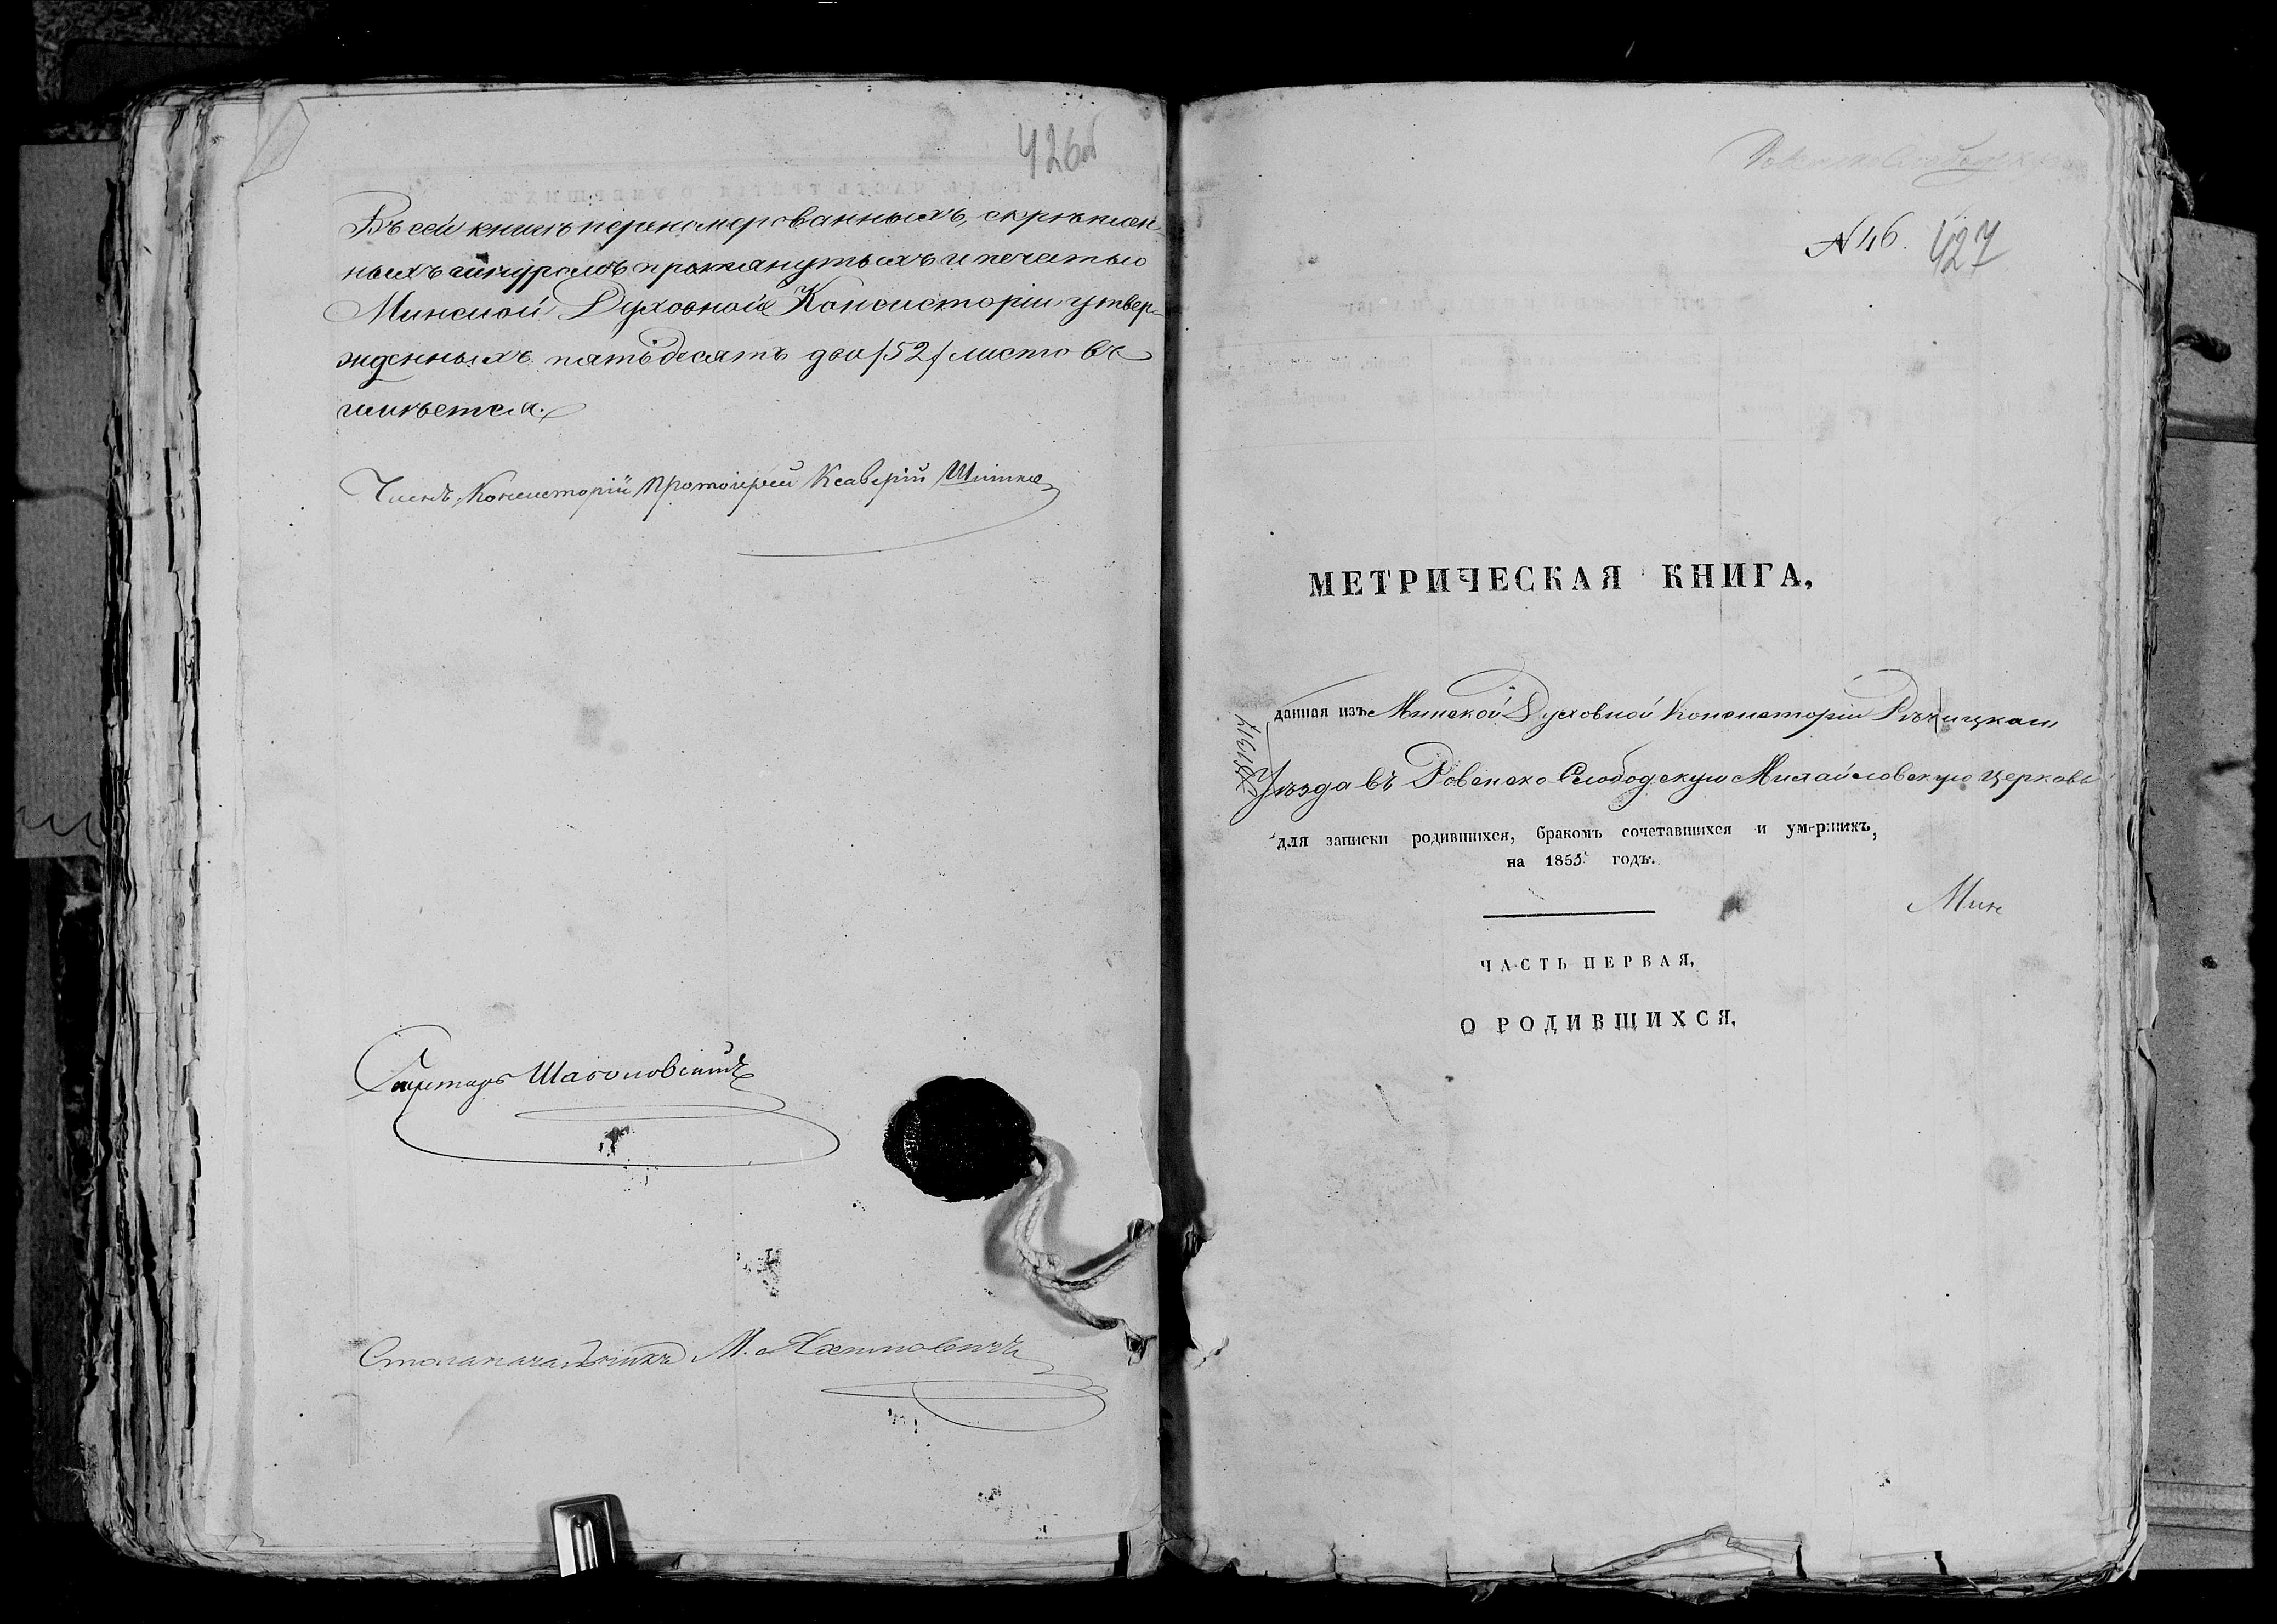 426об
Въ сей книгѣ перенамерованныхъ, скрѣплен-
ныхъ шнуромъ протянутыхъ и печатью
Минской Духовной Консисторіи утвер-
жденныхъ пятьдесятъ два /52/ листовъ
имѣется.
Членъ Консисторіи Протоіерей Ксаверій
Секретарь
Столоначальникъ М.
Ровенско Слободская
№ 46. 427
МЕТРИЧЕСКАЯ КНИГА,
данная изъ Минской Духовной Консисторіи Рѣчицкаго
Уѣзда въ Ровенско-Слободскую Михайловскую церковь
для записки родившихся, бракомъ сочетавшихся и умершихъ,
на 1855 годъ.
Мин
ЧАСТЬ ПЕРВАЯ,
О РОДИВШИХСЯ.